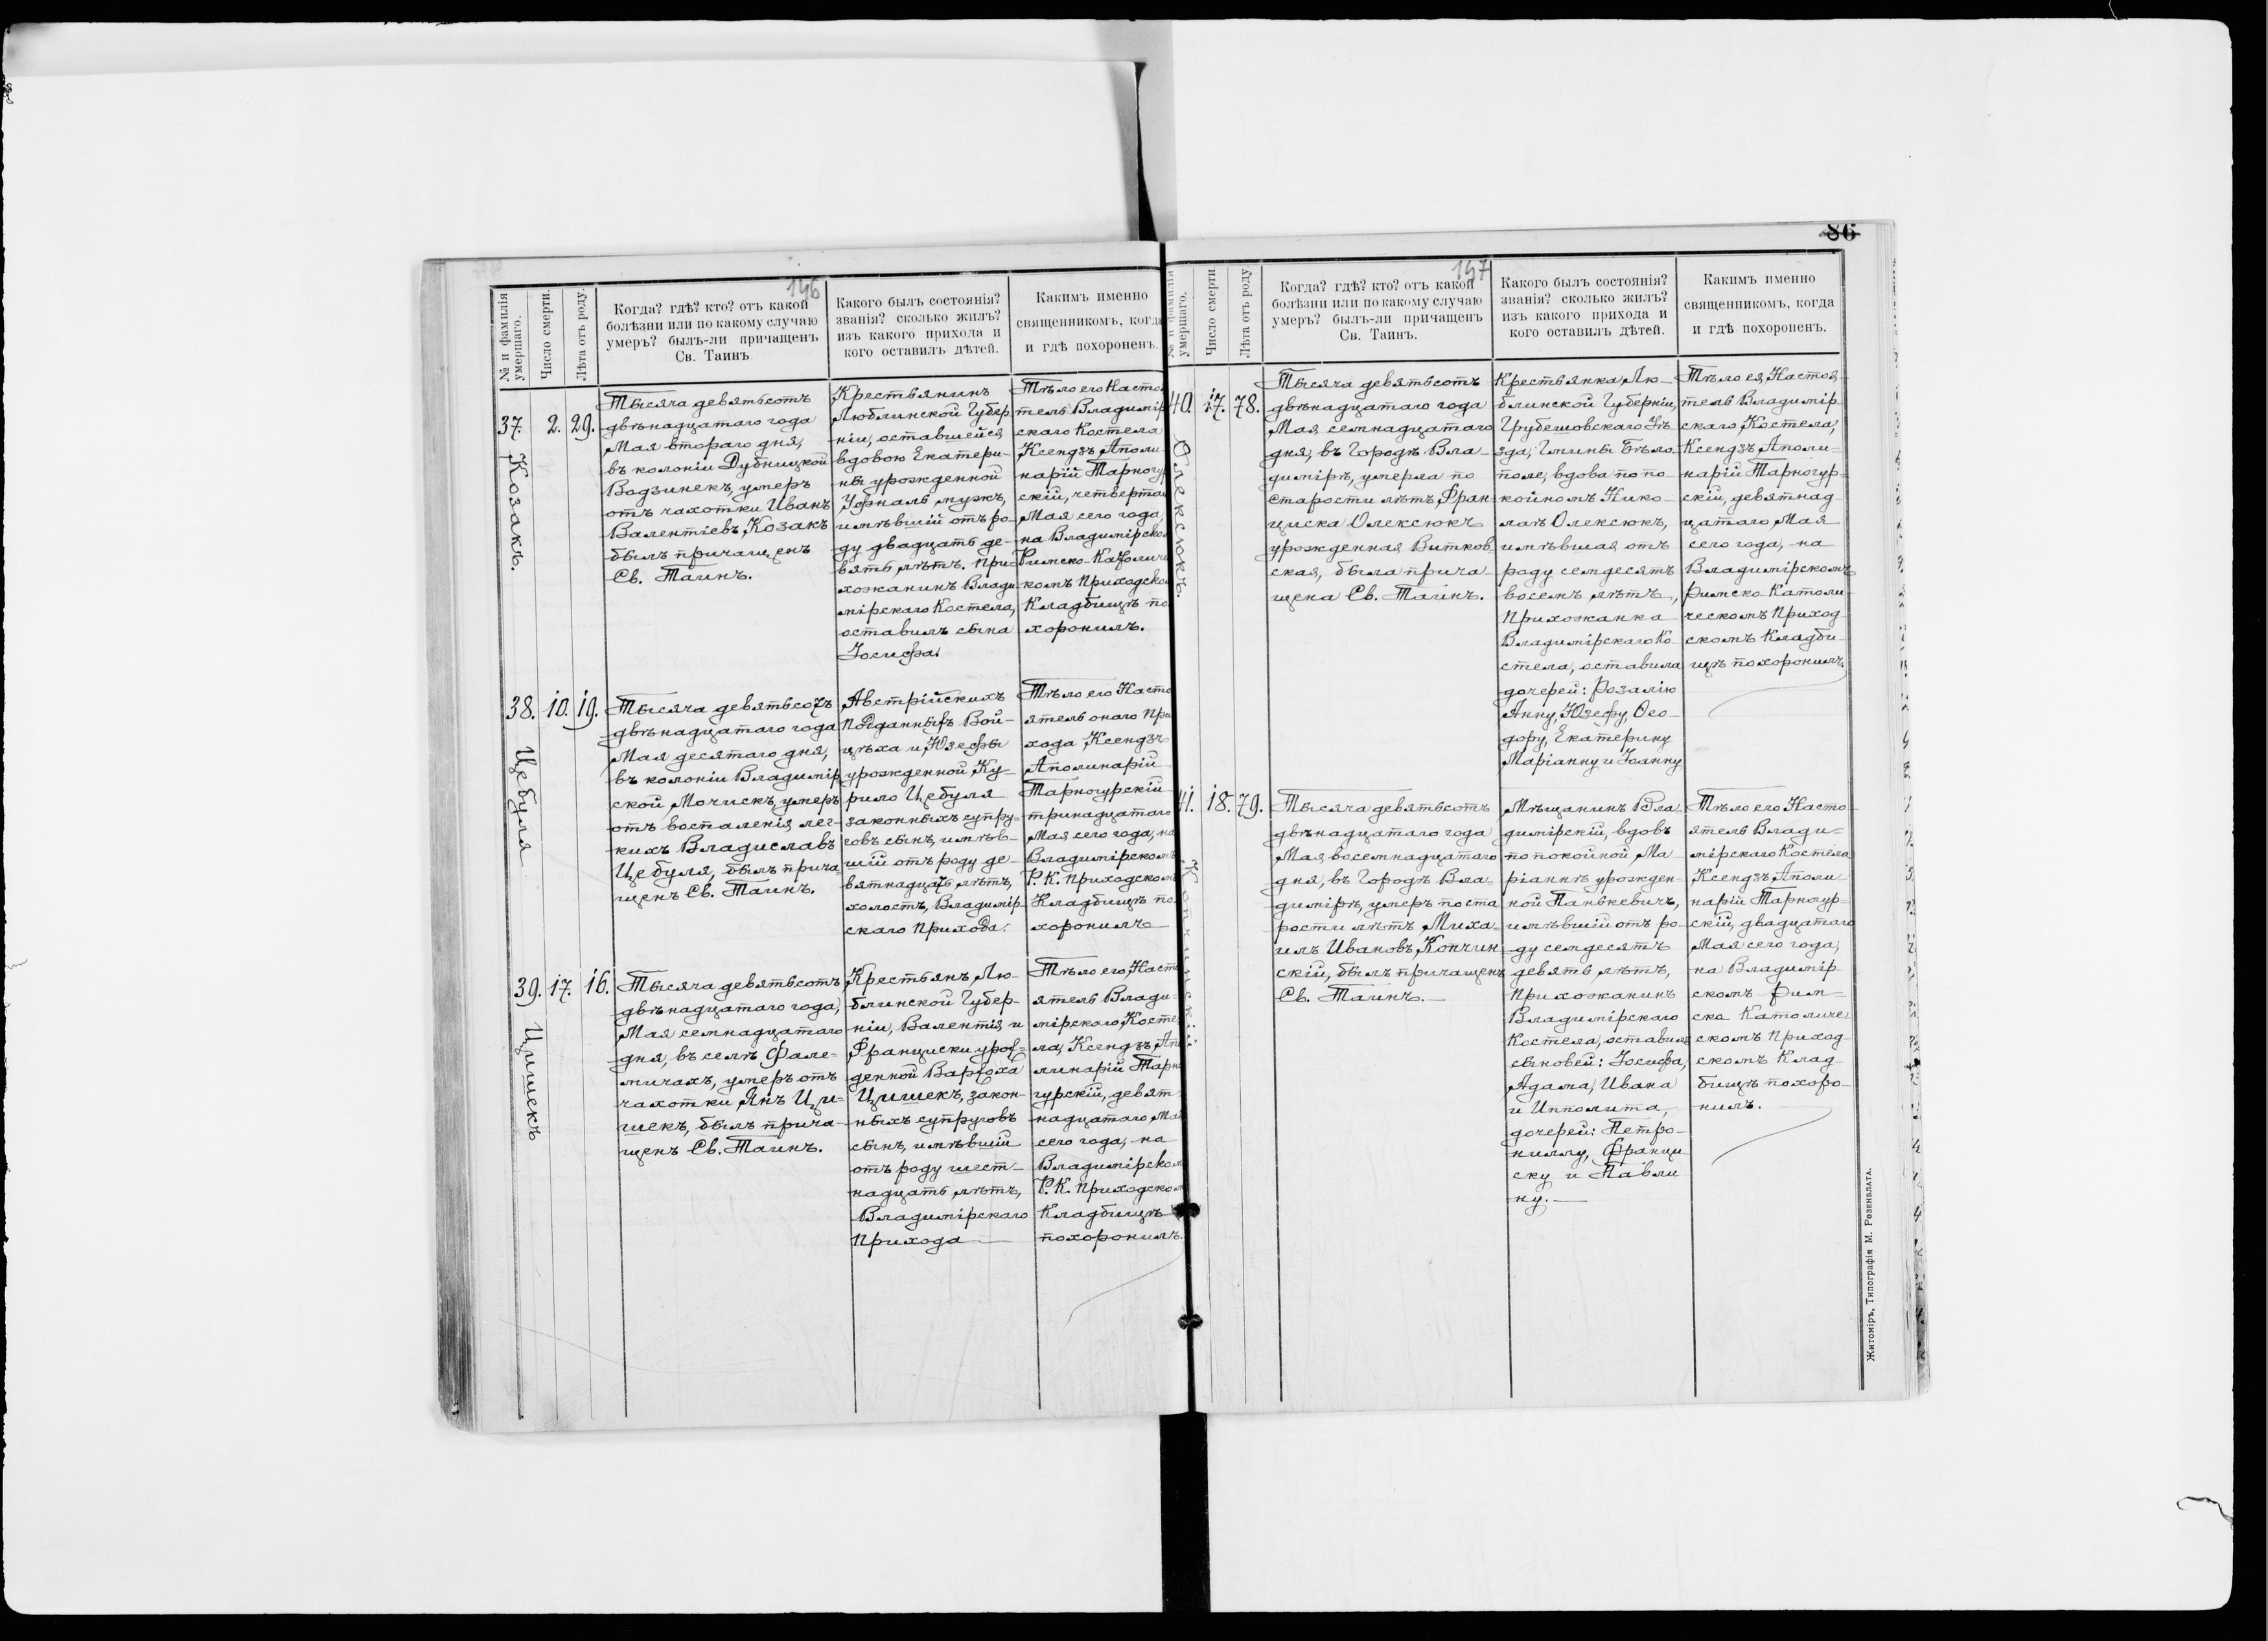 146
№ и фамилія умершаго.
Число смерти.
Лѣта отъ роду.
Когда? гдѣ? кто? отъ какой
болѣзни или по какому случаю
умеръ? былъ-ли причащенъ
Св. Таинъ
Какого былъ состоянія?
званія? сколько жилъ?
изъ какого прихода и
кого оставилъ дѣтей.
Какимъ именно
священникомъ, когда
и гдѣ похороненъ.
37.
Козакъ.
2.
29.
Тысяча девятьсотъ
двѣнадцатаго года
Мая втораго дня,
въ колоніи Дубницкой
Водзинекъ, умеръ
отъ чахотки Иванъ
Валентіевъ Козакъ
былъ причащенъ
Св. Таинъ.
Крестьянинъ
Люблинской Губер
ніи, оставшейся
вдовою Екатери-
ны урожденной
Уфналь мужъ,
имѣвшій отъ ро-
ду двадцать де-
вять лѣтъ. При-
хожанинъ Влади
мірскаго Костела,
оставилъ сына
Іосифа.
Тѣло его Насто
тель Владимір
скаго Костела
Ксендзъ Аполи
нарій Тарногур
скій, четвертаго
Мая сего года
на Владимірском
Римско-Католиче
комъ Приходском
Кладбищѣ по
хоронилъ.
38.
Цебуля
10.
19.
Тысяча девятьсотъ
двѣнадцатаго года
Мая десятаго дня,
въ колоніи Владимір
ской Мочискъ, умеръ
отъ воспаленія лег-
кихъ Владиславъ
Цебуля, былъ прича-
щенъ Св. Таинъ.
Австрійскихъ
Подданныхъ Вой-
цѣха и Юзефы
урожденной Ку-
рило Цебуля
законныхъ супру-
говъ сынъ, имѣв-
шій отъ роду де-
вятнадцать лѣтъ,
холостъ, Владимір-
скаго Прихода.
Тѣло его Насто
ятель онаго При
хода Ксендзъ
Аполинарій
Тарногурскій
тринадцатаго
Мая сего года, на
Владимірскомъ
Р. К. Приходскомъ
Кладбищѣ по
хоронилъ
39.
Цишекъ
17.
16.
Тысяча девятьсотъ
двѣнадцатаго года,
Мая семнадцатаго
дня, въ селѣ Фале-
мичахъ, умеръ отъ
чахотки Янъ Ци-
шекъ, былъ прича-
щенъ Св. Таинъ.
Крестьянъ Лю-
блинской Губер-
ніи, Валентія и
Франциски урож-
денной Вархоха
Цишекъ, закон-
ныхъ супруговъ
сынъ, имѣвшій
отъ роду шест-
надцать лѣтъ,
Владимірскаго
Прихода
Тѣло его Насто
ятель Влади-
мірскаго Косте
ла, Ксендзъ Апо
линарій Тарно
гурскій, девят-
надцатаго Мая
сего года, на
Владимірском
Р. К. Приходском
Кладбищѣ
похоронилъ.
86
147
№ и фамилія умершаго.
Число смерти.
Лѣта отъ роду.
Когда? гдѣ? кто? отъ какой
болѣзни или по какому случаю
умеръ? былъ-ли причащенъ
Св. Таинъ.
Какого былъ состоянія?
званія? сколько жилъ?
изъ какого прихода и
кого оставилъ дѣтей.
Какимъ именно
священникомъ, когда
и гдѣ похороненъ.
40.
Олексюкъ.
17.
78.
Тысяча девятьсотъ
двѣнадцатаго года
Мая семнадцатаго
дня, въ Городѣ Вла-
димірѣ, умерла по
старости лѣтъ, Фран
циска Олексюкъ
урожденная Витков
ская, была прича-
щена Св. Таинъ.
Крестьянка Лю-
блинской Губерніи,
Грубешовскаго Уѣ
зда, Гмины Бѣло
поле, вдова по по-
койномъ Нико-
лаѣ Олексюкъ,
имѣвшая отъ
роду семдесятъ
восемъ лѣтъ,
Прихожанка
Владимірскаго Ко
стела, оставила
дочерей: Розалію
Анну, Юзефу, Ѳео-
дору, Екатерину
Маріанну и Іоанну
Тѣло ея, Настоя-
тель Владимір
скаго Костела,
Ксендзъ Аполи-
нарій Тарногур-
скій, девятнад
цатаго Мая
сего года, на
Владимірскомъ
Римско Католи
ческомъ Приход
скомъ Кладби-
щѣ похоронилъ
41.
Кончинскій
18.
79.
Тысяча девятьсотъ
двѣнадцатаго года
Мая восемнадцатаго
дня, въ Городѣ Вла-
димірѣ, умеръ по ста
рости лѣтъ, Миха-
илъ Ивановъ Кончин
скій, былъ причащенъ
Св. Таинъ.
Мѣщанинъ Вла-
димірскій, вдовъ
по покойной Ма-
ріаннѣ урожден-
ной Панькевичъ,
имѣвшій отъ ро-
ду семдесятъ
девять лѣтъ,
Прихожанинъ
Владимірскаго
Костела, оставилъ
сыновей: Іосифа,
Адама, Ивана
и Ипполита,
дочерей: Петро-
ниллу, Франци
ску и Павли
ну.
Тѣло его Насто
ятель Влади-
мірскаго Костела
Ксендзъ Аполи
нарій Тарногур
скій, двадцатаго
Мая сего года,
на Владимір
скомъ Рим-
ско Католиче
скомъ Приход
скомъ Клад
бищѣ похоро-
нилъ.
Житоміръ, Типографія М. Розенблата.